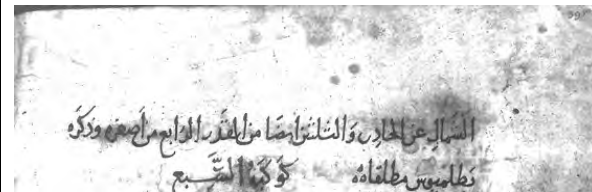 الشمال عن الحادي والثلثين ايضا من القدر الرابع من أصغره وذكره
بطلميوس مطلقا ٥ كوكبة السبع